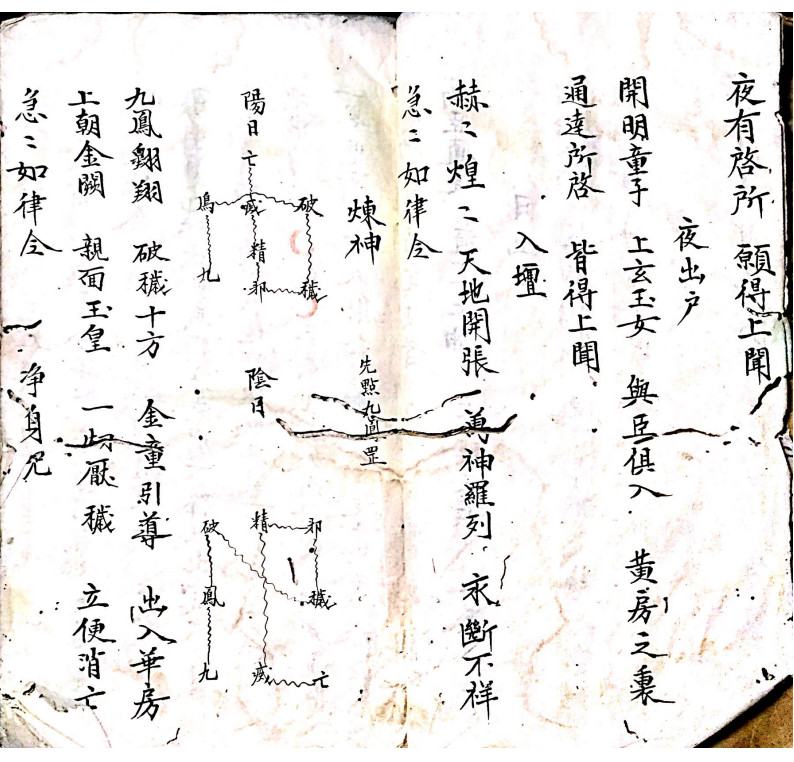 夜有啓所 願得上聞
夜出户
開明童子 上玄玉女 與臣俱入 黄房之裏
通達所啓 皆得上聞
入壇
赫〻煌〻 天地開張 萬神羅列 永斷不祥
急〻如律令
煉神
先點九鳳罡
陽日
破 穢 邪 精 瘟 亡 鳳 九
陰日
邪 穢 精 瘟 亡 破 鳳 九
九鳳翱翔 破穢十方 金童引導 出入華房
上朝金闕 親面玉皇 一步厭穢 立便消亡
急〻如律令 净身咒